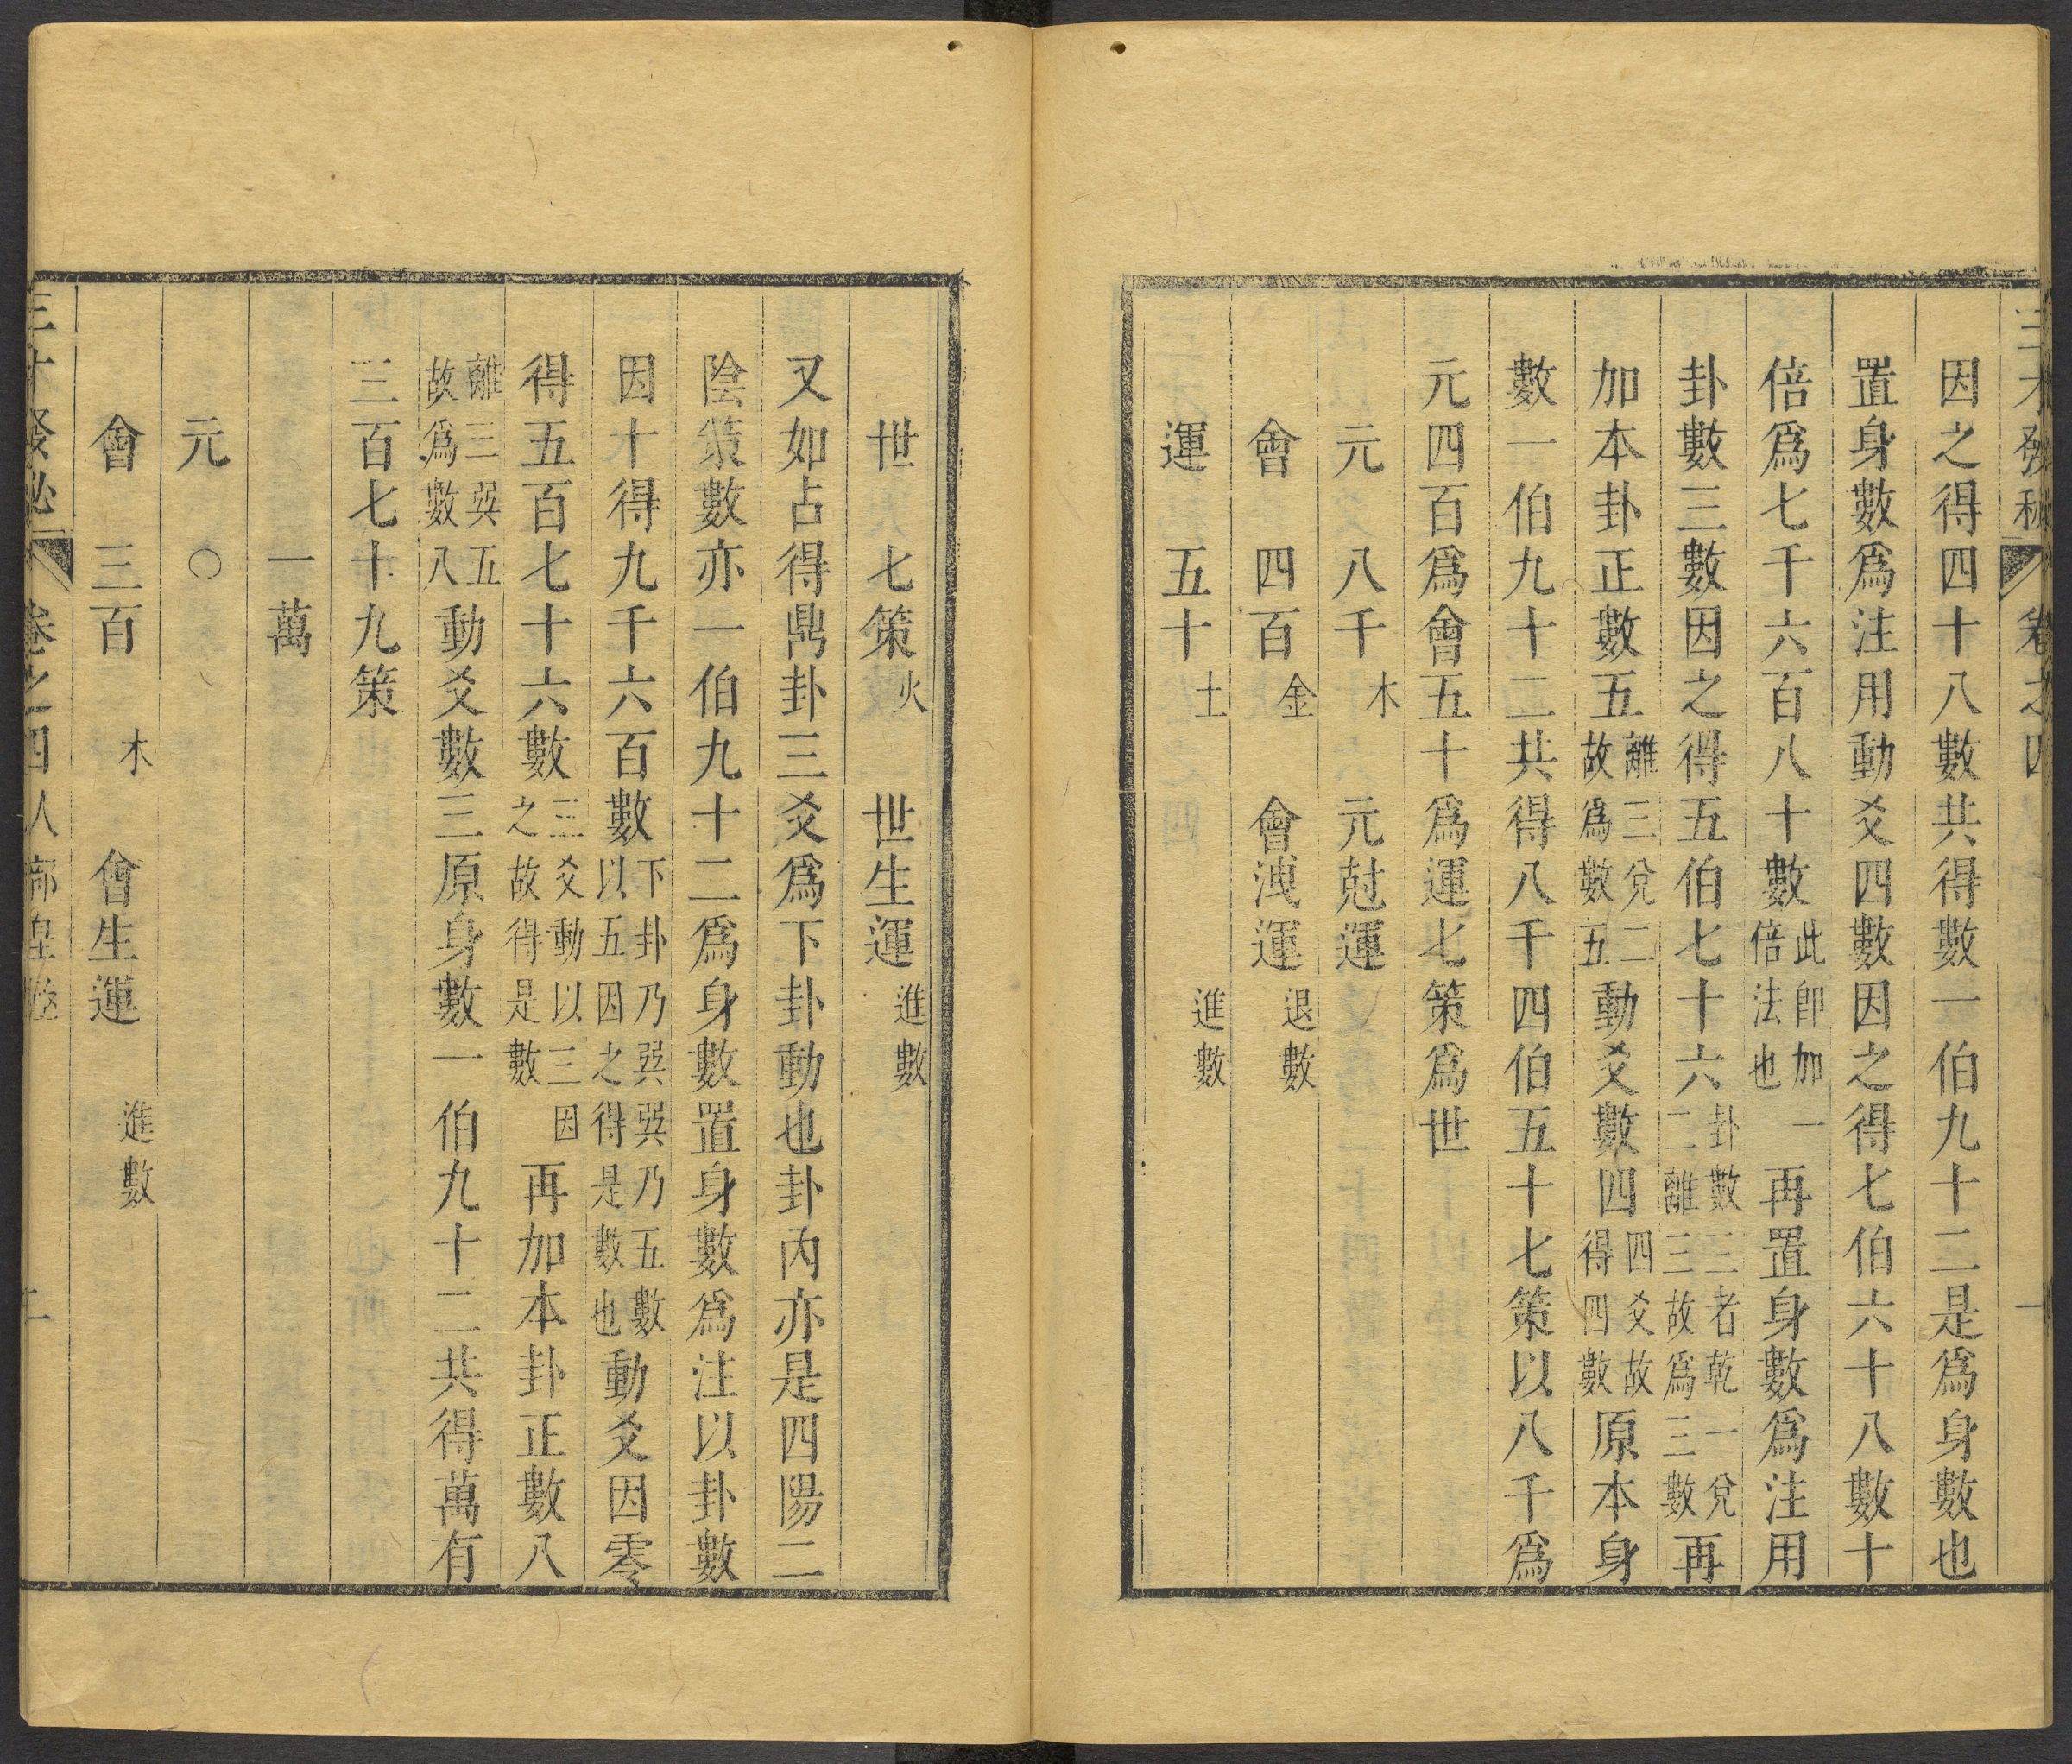 三才發秘 卷之四 一
因之得四十八數共得數一伯九十二是爲身數也
置身數爲注用動爻四數因之得七伯六十八數十
倍爲七千六百八十數此卽加一倍法也再置身數爲注用
卦數三數因之得五伯七十六卦數三者乾一兌二離三故爲三數再
加本卦正數五離三兌二故爲數五動爻數四四爻故得四數原本身
數一伯九十二共得八千四伯五十七策以八千爲
元四百爲會五十爲運七策爲世
元 八千木 元尅運
會 四百金 會洩運退數
運 五十土 進數
世 七策火 世生運進數
又如占得鼎卦三爻爲下卦動也卦內亦是四陽二
陰策數亦一伯九十二爲身數置身數爲注以卦數
因十得九千六百數下卦乃巽巽乃五數以五因之得是數也動爻因零
得五百七十六數三爻動以三因之故得是數再加本卦正數八
離三巽五故爲數八動爻數三原身數一伯九十二共得萬有
三百七十九策
一萬
元 〇
會 三百木 會生運 進數
三才發秘 卷之四人部